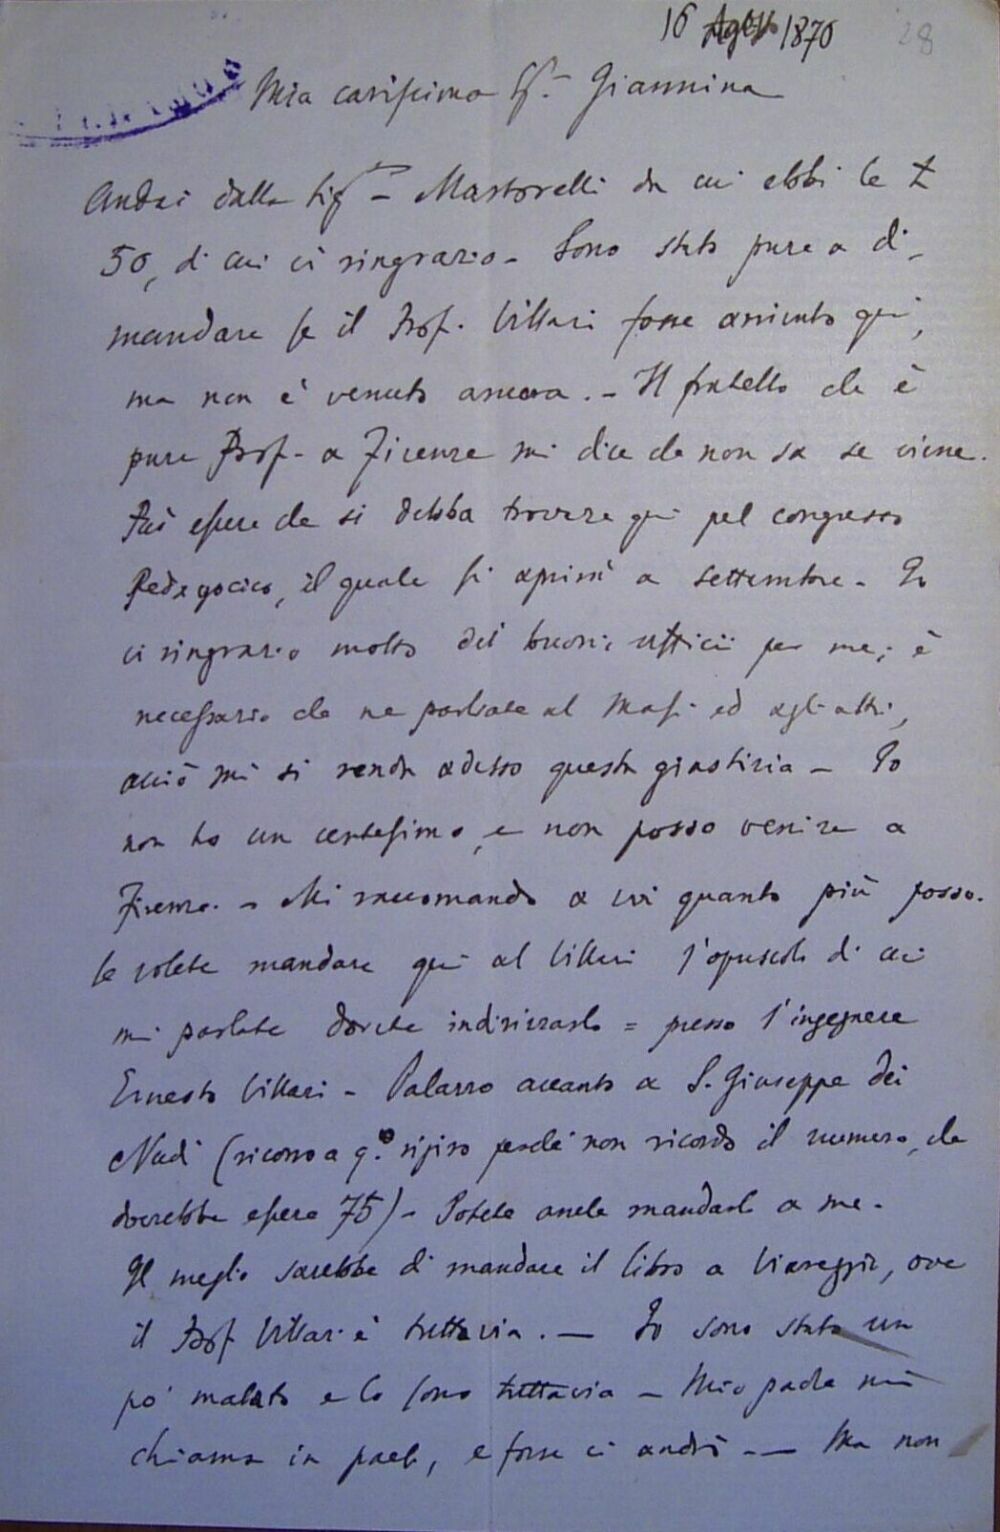 16 Agosto 1870
28
Mia carissima Sig.ra Giannina
Andai dalla Sig.ra Mastorelli da cui ebbi le £
50, di cui vi ringrazio - Sono stato pure a di-
mandare se il Prof. Villari fosse arrivato qui,
ma non è venuto ancora. - Il fratello che è
pure Prof. a Firenze mi dice che non sa se viene.
Può essere che si debba trovare qui pel congresso
Pedagogico, il quale si aprirà a settembre - Io
vi ringrazio molto dei buoni ufficii per me; è
necessario che ne parliate al Masi ed agli altri,
acciò mi si renda adesso questa giustizia - Io
non ho un centesimo, e non posso venire a
Firenze. - Mi raccomando a voi quanto più posso.
Se volete mandare qui al Villari l'opuscolo di cui
mi parlate dovete indirizzarlo = presso l'ingegnere
Ernesto Villari - Palazzo accanto a S. Giuseppe dei
Nudi (ricorro a q.o ripiro perchè non ricordo il numero, che
dovrebbe essere 75) - Potete anche mandarlo a me.
Il meglio sarebbe di mandare il libro a Viareggio, ove
il Prof Villari è tuttavia. - Io sono stato un
po' malato e lo sono tuttavia - Mio padre mi
chiama in paese, e forse ci andrò - Ma non